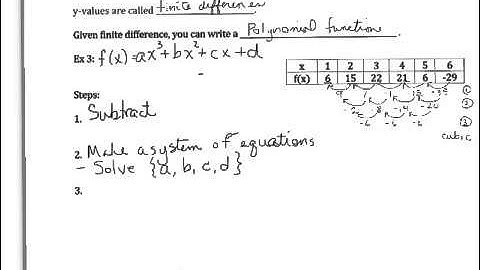 y-values are called finite differences
Given finite difference, you can write a Polynomial function.
Ex 3: f(x)=ax³+bx²+cx+d
x 1 2 3 4 5 6
f(x) 6 15 22 21 6 -29
9 7 -1 -15 -35 ①
-2 -8 -14 -20 ②
-6 -6 -6 ③
cubic
Steps:
1. Subtract
2. Make a system of equations
- Solve {a, b, c, d}
3.